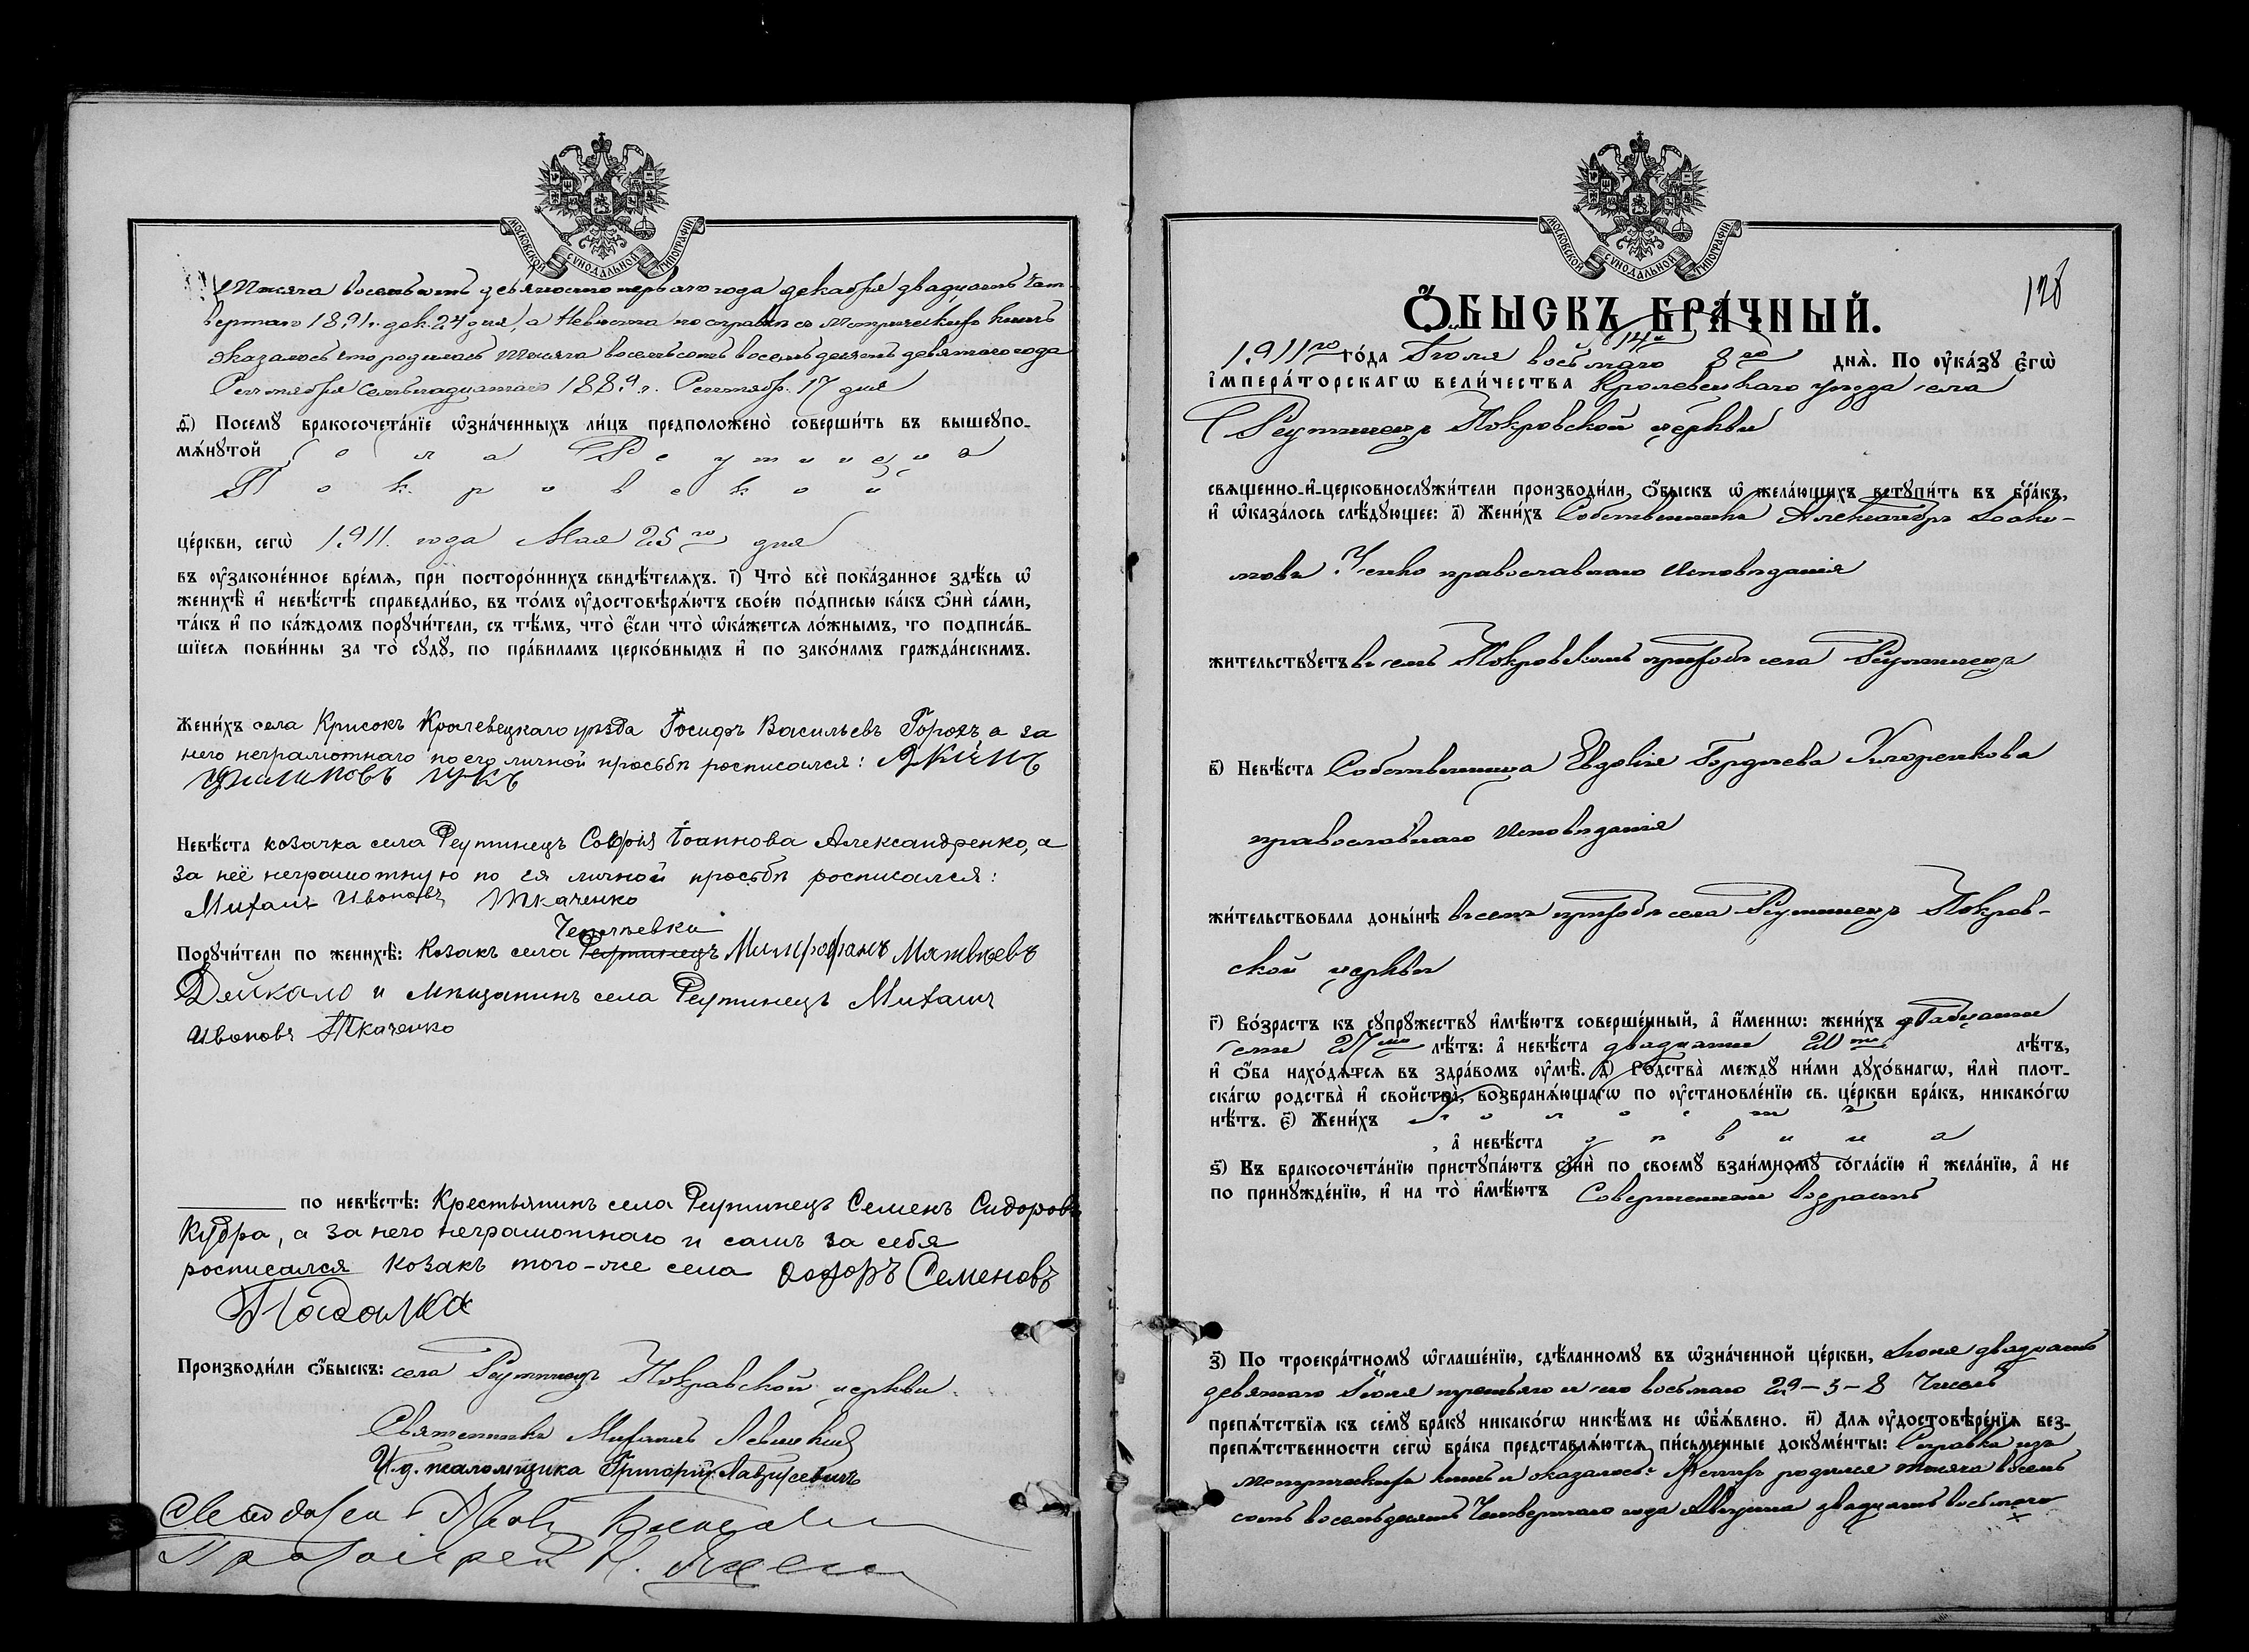 МОСКОВСКОЙ СѴНОДАЛЬНОЙ ТИПОГРАФІИ
Тысяча восемьсотъ девяносто перваго года декабря двадцать чет-
вертаго 1891 г. дек. 24 дня), а Невѣста по справкѣ съ Метрическихъ книгъ
оказалось что родилась тысяча восемьсотъ восемьдесятъ девятаго года
Сентября семнадцатаго 1889 г. Сентябр. 17 дня
д҃) Посемꙋ̀ бракосочета́нїе ѡ҆зна́ченныхъ ли́цъ предположено̀ соверши́ть въ вышеꙋпо-
мѧ́нꙋтой села Реутинца
Покровской
це́ркви, сегѡ̀ 1911. года Мая 25го дня
въ ᲂу҆зако́ненное вре́мѧ, при посторо́ннихъ свидѣ́телѧхъ. і҃) Что̀ всѐ пока́занное здѣ́сь ѡ҆
женихѣ̀ и҆ невѣ́стѣ справедли́во, въ то́мъ ᲂу҆достовѣрѧ́ютъ свое́ю по́дписью ка́къ ѻ҆нѝ са́ми,
та́къ и҆ по ка́ждомъ порꙋчи́тели, съ тѣ́мъ, что̀ є҆́сли что̀ ѡ҆ка́жетсѧ ло́жнымъ, то подписа́в-
шїесѧ пови́нны за то̀ сꙋдꙋ̀, по пра́виламъ церко́внымъ и҆ по зако́намъ гражда́нскимъ.
Жени́хъ села Крисокъ Кролевецкаго уѣзда Іосифъ Васильевъ Горохъ, а за
него неграмотнаго по его личной просьбѣ росписался: Якимъ
Филиповъ Цукъ
Невѣ́ста козачка села Реутинецъ Софія Іоаннова Александренко, а
за неё неграмотную по ея личной просьбѣ росписался:
Михаилъ Ивоновъ Ткаченко
Чепліевки
Порꙋчи́тели по женихѣ̀: Козакъ села Реутинецъ Митрофанъ Матвѣевъ
Дейкало и мѣщанинъ села Реутинецъ Михаилъ
Ивоновъ Ткаченко
по невѣ́стѣ: Крестьянинъ села Реутинецъ Семенъ Сидоровъ
Кудра, а за него неграмотнаго и самъ за себя
росписался козакъ того-же села Ѳодоръ Семеновъ
Производи́ли ѻ҆́быскъ: села Реутинецъ Покравской церкви
Священникъ Михаилъ Левицкій
И.д. псаломщика Григорій Лаврусевичъ
МОСКОВСКОЙ СѴНОДАЛЬНОЙ ТИПОГРАФІИ
128
Ѻ҆́БЫСКЪ БРА́ЧНЫЙ.
14
1911го го́да Іюля восьмаго 8го днѧ̀. По ᲂу҆ка́зꙋ є҆гѡ̀
і҆мпера́торскагѡ вели́чества Кролевецкаго уѣзда села
Реутинецъ Покровской церкви
свѧщенно-и҆-церковнослꙋжи́тели производи́ли ѻ҆́быскъ ѡ҆ жела́ющихъ встꙋпи́ть въ бра́къ,
и҆ ѡ҆каза́лось слѣ́дꙋющее: а҃) Жени́хъ Собственникъ Александръ Іоаки-
мовъ православнаго исповѣданія
жительствꙋетъ въ семъ Покровскомъ приходѣ села Реутинецъ
в҃) Невѣ́ста Собственница Евдокія Гордѣева
православнаго исповѣданія
жи́тельствовала доны́нѣ въ семъ приходѣ села Реутинецъ Покров-
ской церкви
г҃) Во́зрастъ къ сꙋпрꙋ́жествꙋ и҆мѣ́ютъ соверше́нный, а҆ и҆́меннѡ: жени́хъ двадцати
семи 27ми лѣ́тъ: а҆ невѣ́ста двадцати 20ти лѣ́тъ,
и҆ ѻ҆́ба нахо́дѧтсѧ въ здра́вомъ ᲂу҆мѣ̀. д҃) Родства̀ междꙋ̀ ни́ми дꙋхо́внагѡ, и҆лѝ плот-
ска́гѡ родства̀ и҆ свойства̀, возбранѧ́ющагѡ по ᲂу҆становле́нїю св. це́ркви бра́къ, никако́гѡ
нѣ́тъ. є҃) Жени́хъ холостъ
, а҆ невѣ́ста дѣвица
ѕ҃) Къ бракосочета́нїю пристꙋпа́ютъ ѻ҆нѝ по своемꙋ̀ взаи́мномꙋ согла́сїю и҆ жела́нїю, а҆ не
по принꙋжде́нїю, и҆ на то̀ и҆мѣ́ютъ Совершенный возрастъ
з҃) По троекра́тномꙋ ѡ҆глаше́нїю, сдѣ́ланномꙋ въ ѡ҆зна́ченной це́ркви, Іюня двадцать
девятаго Іюля третьяго и сего восьмаго 29-3-8 чиселъ
препѧ́тствїѧ къ семꙋ̀ бра́кꙋ никако́гѡ никѣ́мъ не ѡ҆бъѧ́влено. и҃) Длѧ ᲂу҆достовѣре́нїѧ без-
препѧ́тственности сегѡ̀ бра́ка представлѧ́ютсѧ пи́сьменные докꙋме́нты: Справка изъ
метрическихъ книгъ и оказалось: Женихъ родился тысяча восемь
сотъ восемьдесятъ четвертаго года Августа двадцать восьмого